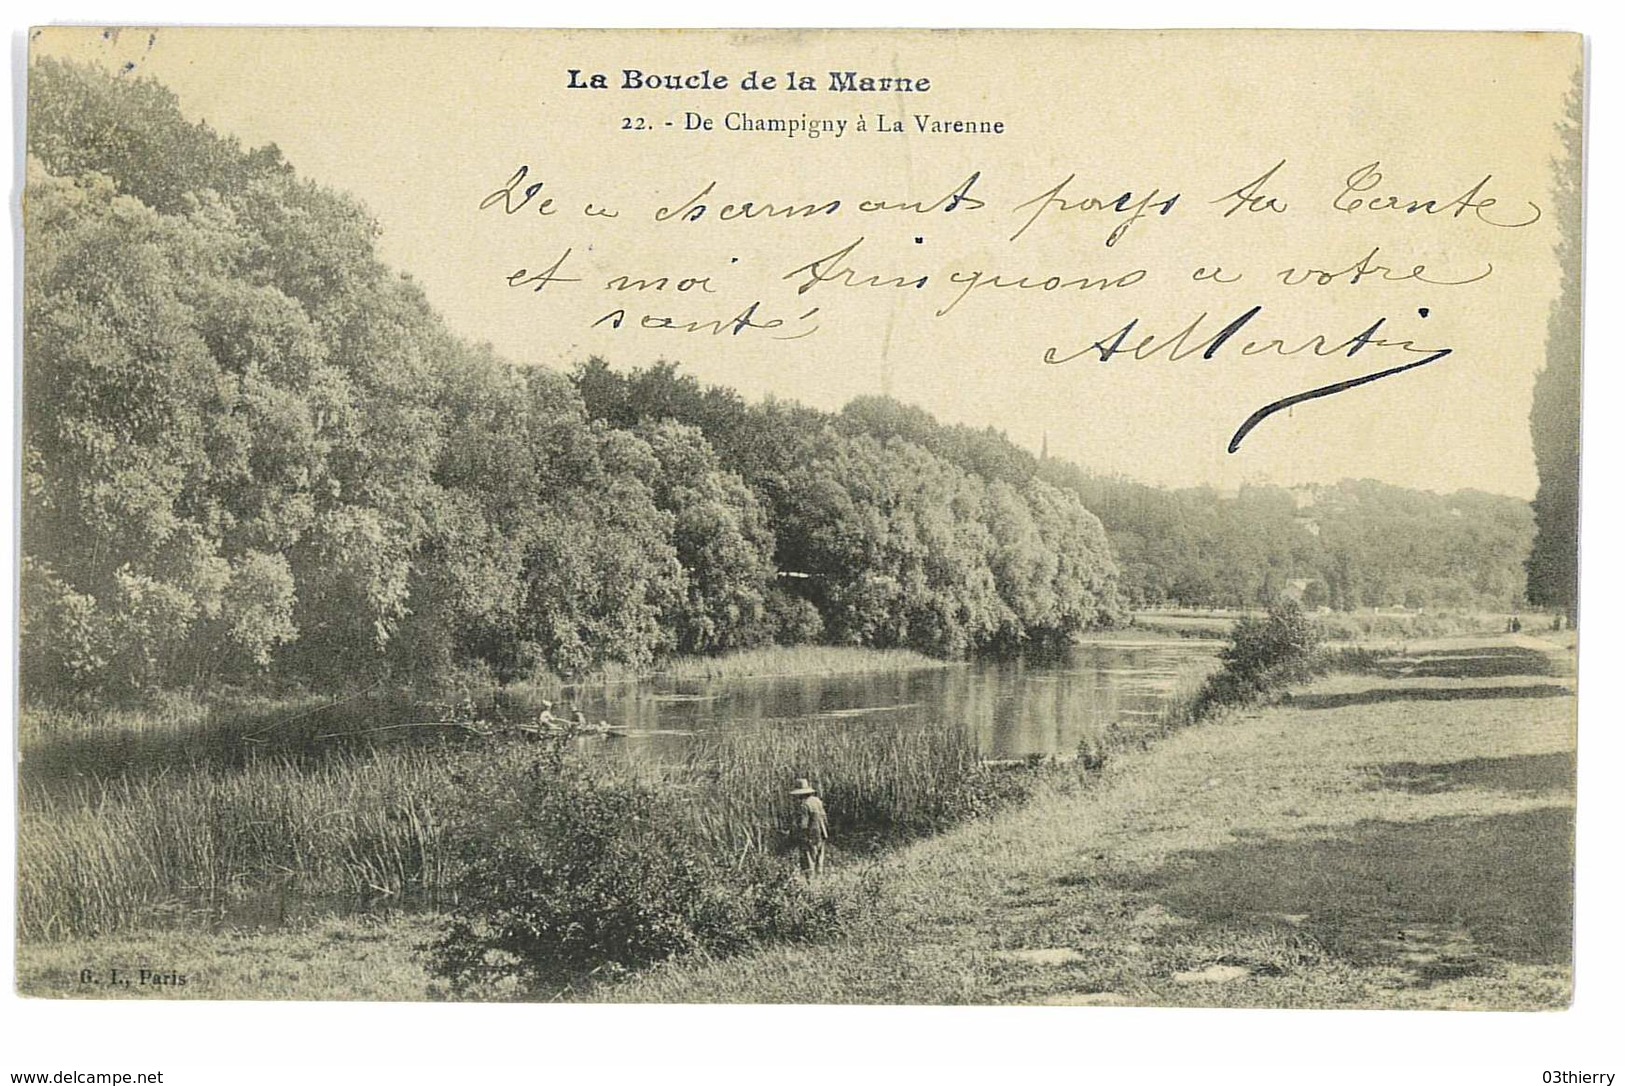 La Boucle de la Marne
22. - De Champigny à La Varenne
De ce charmant pays ta Tante
et moi trinquons a votre
santé
AMartin
G. I., Paris
www.delcampe.net
03thierry